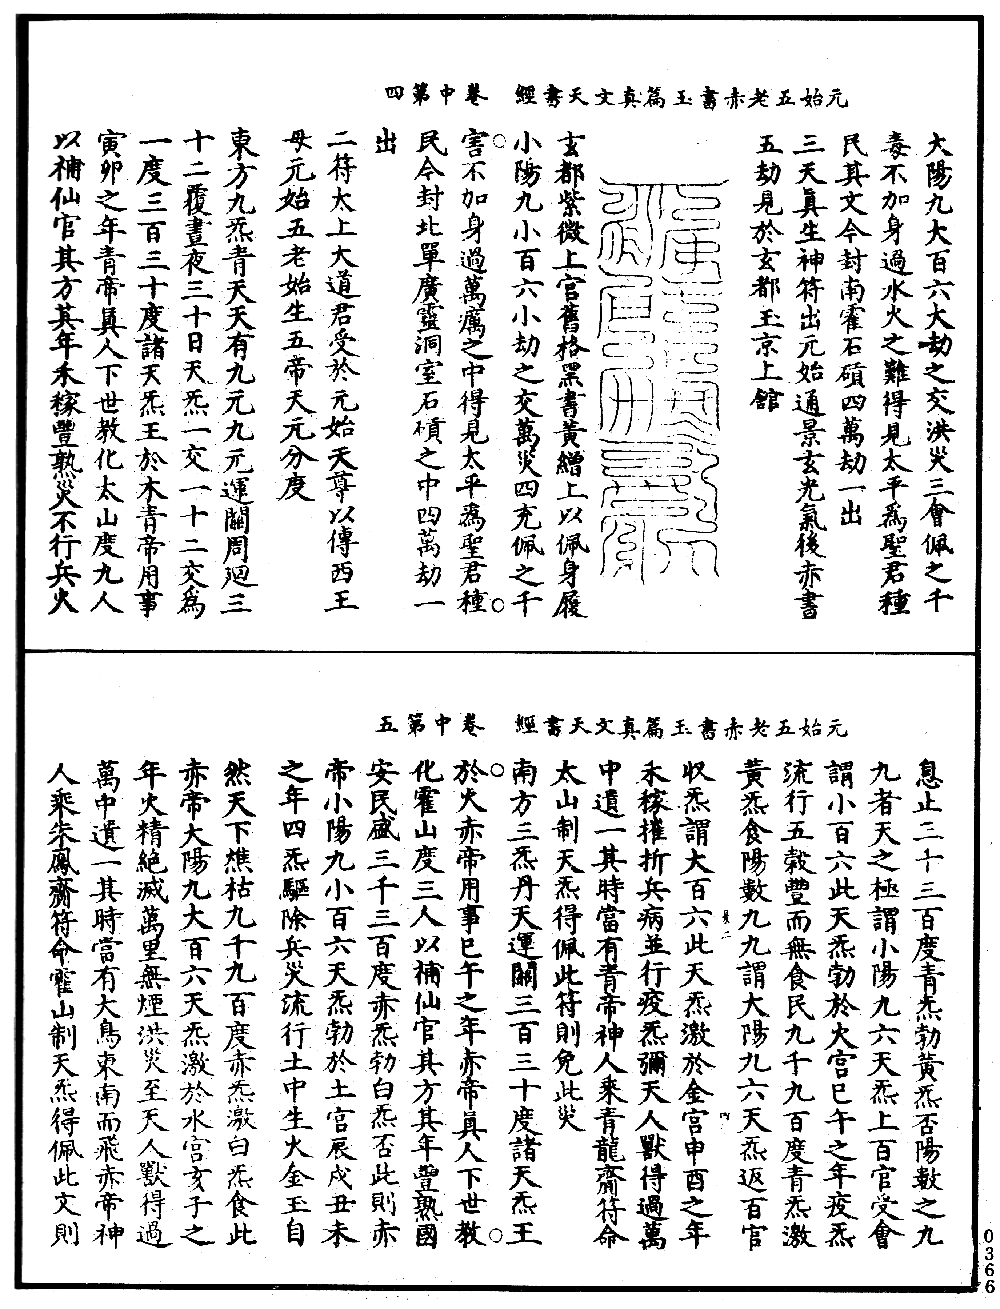 元始五老赤書玉篇真文天書經　卷中第四
大陽九大百六大劫之交洪災三會佩之千
毒不加身過水火之難得見太平為聖君種
民其文今封南霍石磧四萬劫一出
三天真生神符出元始通景玄光氣後赤書
五劫見於玄都玉京上館
玄都紫微上宮舊格黑書黃繒上以佩身履
小陽九小百六小劫之交萬災四充佩之千
害不加身過萬癘之中得見太平為聖君種
民今封北單廣靈洞室石磧之中四萬劫一
出
二符太上大道君受於元始天尊以傳西王
母元始五老始生五帝天元分度
東方九炁青天天有九元九元運關周迴三
十二覆晝夜三十日天炁一交一十二交為
一度三百三十度諸天炁王於木青帝用事
寅卯之年青帝真人下世教化太山度九人
以補仙官其方其年禾稼豐熟災不行兵火
元始五老赤書玉篇真文天書經　卷中第五
息止三千三百度青炁勃黃炁否陽數之九
九者天之極謂小陽九六天炁上百官受會
謂小百六此天炁勃於火宮巳午之年疫炁
流行五穀豐而無食民九千九百度青炁激
黃炁食陽數九九謂大陽九六天炁返百官
収炁謂大百六此天炁激於金宮申酉之年
禾稼摧折兵病並行疫炁彌天人獸得過萬
中遺一其時當有青帝神人乘青龍齎符命
太山制天炁得佩此符則免此災
南方三炁丹天運關三百三十度諸天炁王
於火赤帝用事巳午之年赤帝真人下世教
化霍山度三人以補仙官其方其年豐熟國
安民盛三千三百度赤炁勃白炁否此則赤
帝小陽九小百六天炁勃於土宮辰戌丑未
之年四炁驅除兵災流行土中生火金玉自
然天下燋枯九千九百度赤炁激白炁食此
赤帝大陽九大百六天炁激於水宮亥子之
年火精絕滅萬里無煙洪災至天人獸得過
萬中遺一其時當有大鳥東南而飛赤帝神
人乘朱鳳齎符命霍山制天炁得佩此文則
0366